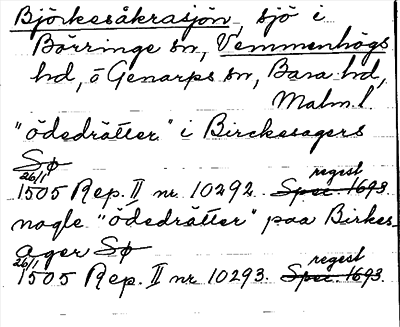 Björkesåkrasjön, sjö i
Börringe sn, Vemmenhögs
hd, o Genarps sn, Bara hd,
Malm. l.
"ödedrätter" i Birckesagers
Sø
26/1 regest
1505 Rep. II nr 10292. Spec. 1693
nogle "Ödedrätter" paa Birkes-
ager Sø
26/1 regest
1505 Rep. II nr 10293. Spec. 1693.